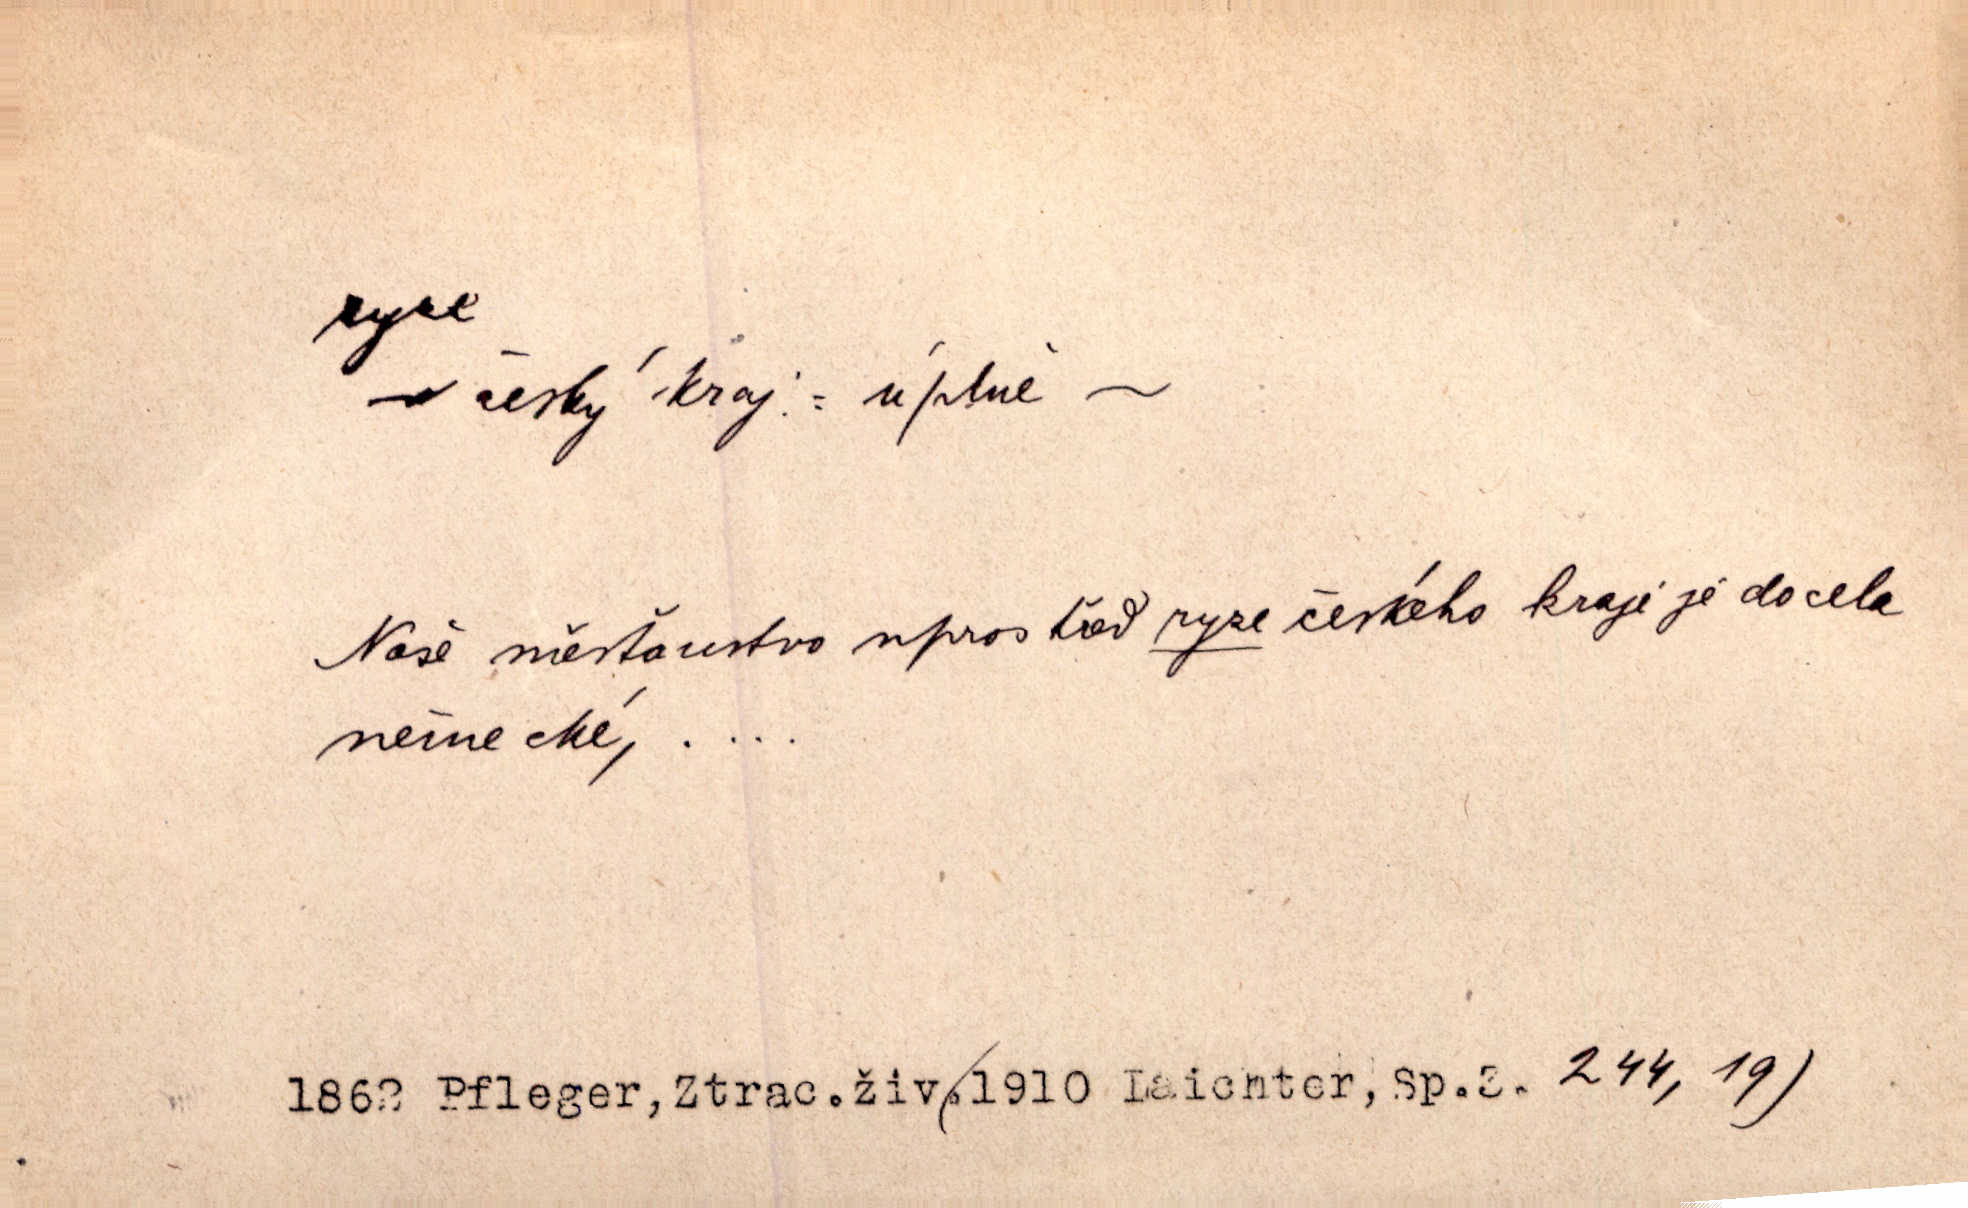 ryze
~ český kraj = úplně ~
Naše měšťanstvo uprostřed ryze českého kraje je docela
německé, . . . .
1862 Pfleger,Ztrac.živ.(1910 Laichter,Sp.2. 244, 19)